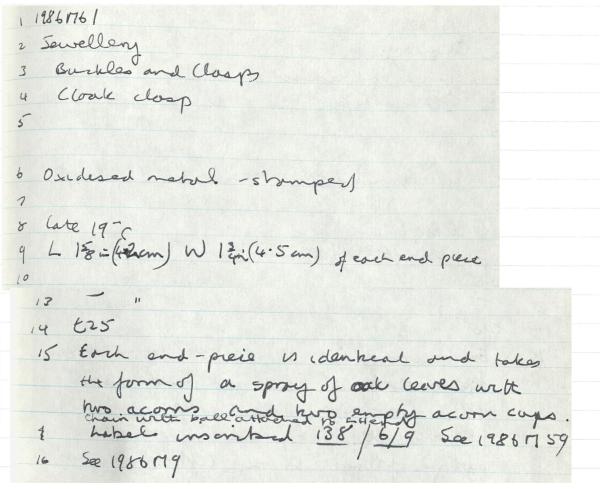 1 1986M61
2 Jewellery
3 Buckles and Clasps
4 Cloak clasp
5
6 Oxidesed metal - stamped
7
8 Late 19th C
9 L 1 5/8 in (4.2cm) W 1 3/4 in (4.5cm) of each end piece
10
13 — "
14 £25
15 Each end-piece is identical and takes
the form of a spray of oak leaves with
two acorns and two empty acorn cups.
chain with ball attached to
Label inscribed 138 / 6/9 See 1986M59
16 See 1986M9